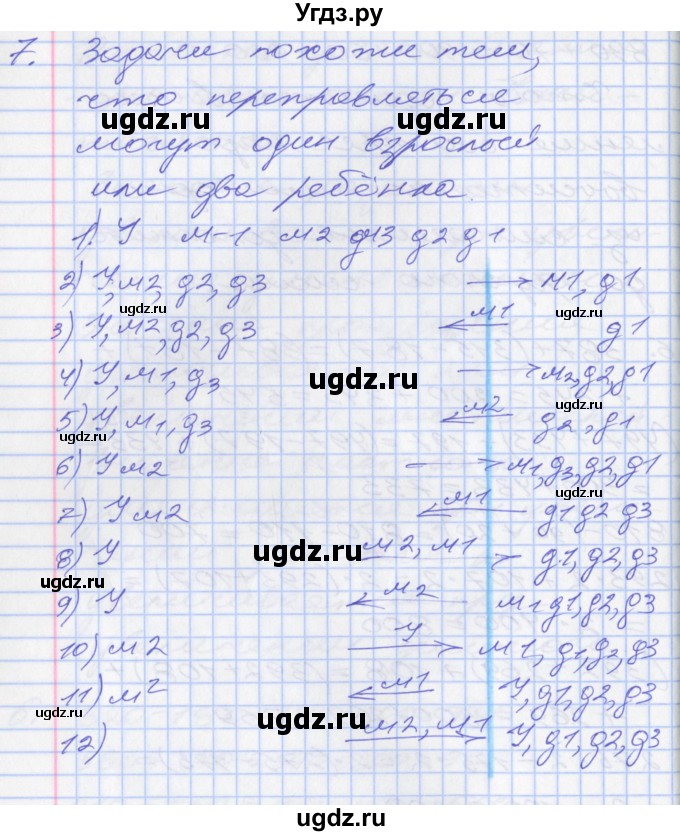 Угдз.ру
7. Задачи похожи тем,
что переправляться
ugdz.ru ugdz.ru
могут один взрослый
или два ребёнка.
1) У м-1 м2 д13 д2 д1
2) У, м2, д2, д3 → м1, д1
ugdz.ru ugdz.ru
3) У, м2, д2, д3 ← м1 д1
4) У, м1, д3 → м2, д2, д1
ugdz.ru
ugdz.ru
5) У, м1, д3 ← м2 д2, д1
ugdz.ru
6) У м2 → м1, д3, д2, д1
ugdz.ru
7) У м2 ← м1 д1 д2 д3
ugdz.ru
8) У м2, м1 → д1, д2, д3
ugdz.ru
ugdz.ru
9) У ← м2 м1 д1, д2, д3
10) м2 У → м1, д1, д2, д3
ugdz.ru
11) м2 ← м1 У, д1, д2, д3
ugdz.ru
ugdz.ru ugdz.ru
12) м2, м1 → У, д1, д2, д3
ugdz.ru
ugdz.ru ugdz.ru